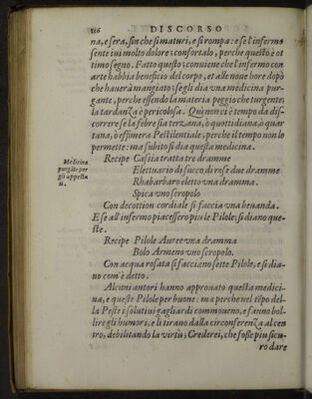 116 DISCORSO
na, e sera, fin che si maturi, e si rompa: e se l'infermo
sente iui molto dolore; confortalo, perche questo è ot
timo segno. Fatto questo; conuiene che l'infermo con
arte habbia beneficio del corpo, et alle noue hore dopò
che hauerà mangiato: se gli dia vna medicina pur-
gante, perche essendo la materia peggio che turgente;
la tardanza è pericolosa. Quì non ci è tempo da dis-
correre se la febre sia terzana, ò quottidiana, ò quar
tana, ò effimera Pestilentiale, perche il tempo non lo
permette: ma subito si dia questa medicina.
Medicina
purgāte per
gli appesta
ti.
Recipe Cassia tratta tre dramme
Elettuario di succo di rose due dramme
Rhabarbaro eletto vna dramma.
Spica vno scropolo
Con decottion cordiale si faccia vna beuanda.
E se all'infermo piacessero piu le Pilole; si diano que-
ste.
Recipe Pilole Auree vna dramma
Bolo Armeno vno scropolo.
Con acqua rosata si facciano sette Pilole, e si dia-
no com'è detto.
Alcuni autori hanno approuato questa medici-
na, e queste Pilole per buone: ma perche nel tēpo del-
la Peste i solutiui gagliardi commouono, e fanno bol-
lire gli humori, e li tirano dalla circonferenza al cen
tro, debilitando la virtù; Crederei, che fosse piu sicu-
ro dare